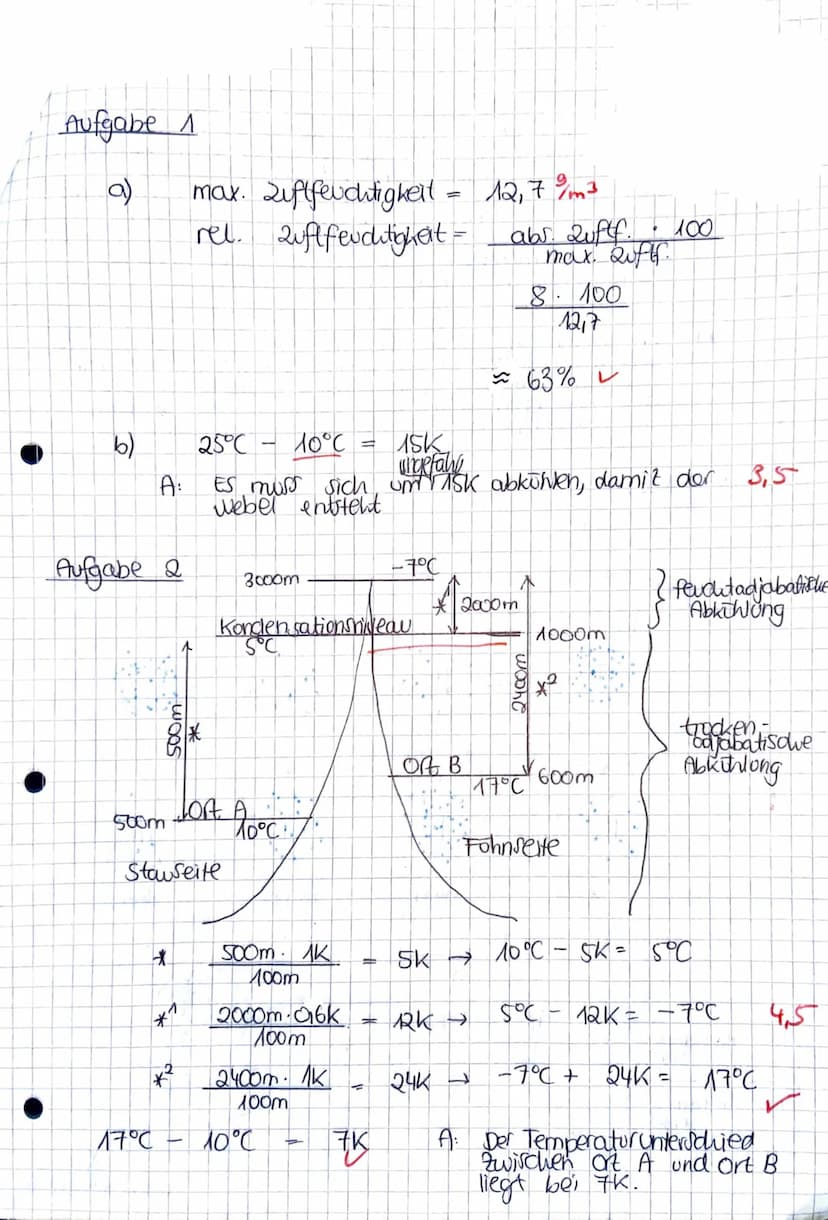 Aufgabe 1
a) max. Luftfeuchtigkeit = 12,7 g/m3
rel. Luftfeuchtigkeit = abs. Luftf. · 100
max. Luftf.
8 · 100
12,7
≈ 63% ✓
b) 25°C - 10°C = 15K
ungefähr
A: Es muss sich um 15K abkühlen, damit der 3,5
Nebel entsteht
Aufgabe 2
3000m -7°C
* 2000m
feuchtadjabatische
Abkühlung
Kondensationsniveau
5°C
1000m
500m
*
2400m
*2
trocken-
adjabatische
Abkühlung
Ort B
17°C 600m
500m Ort A
10°C
Stauseite
Föhnseite
* 500m · 1K = 5K → 10°C - 5K = 5°C
100m
*1 2000m · 0,6K = 12K → 5°C - 12K = -7°C 4,5
100m
*2 2400m · 1K = 24K → -7°C + 24K = 17°C
100m
✓
17°C - 10°C = 7K ✓
A: Der Temperaturunterschied
zwischen Ort A und Ort B
liegt bei 7K.